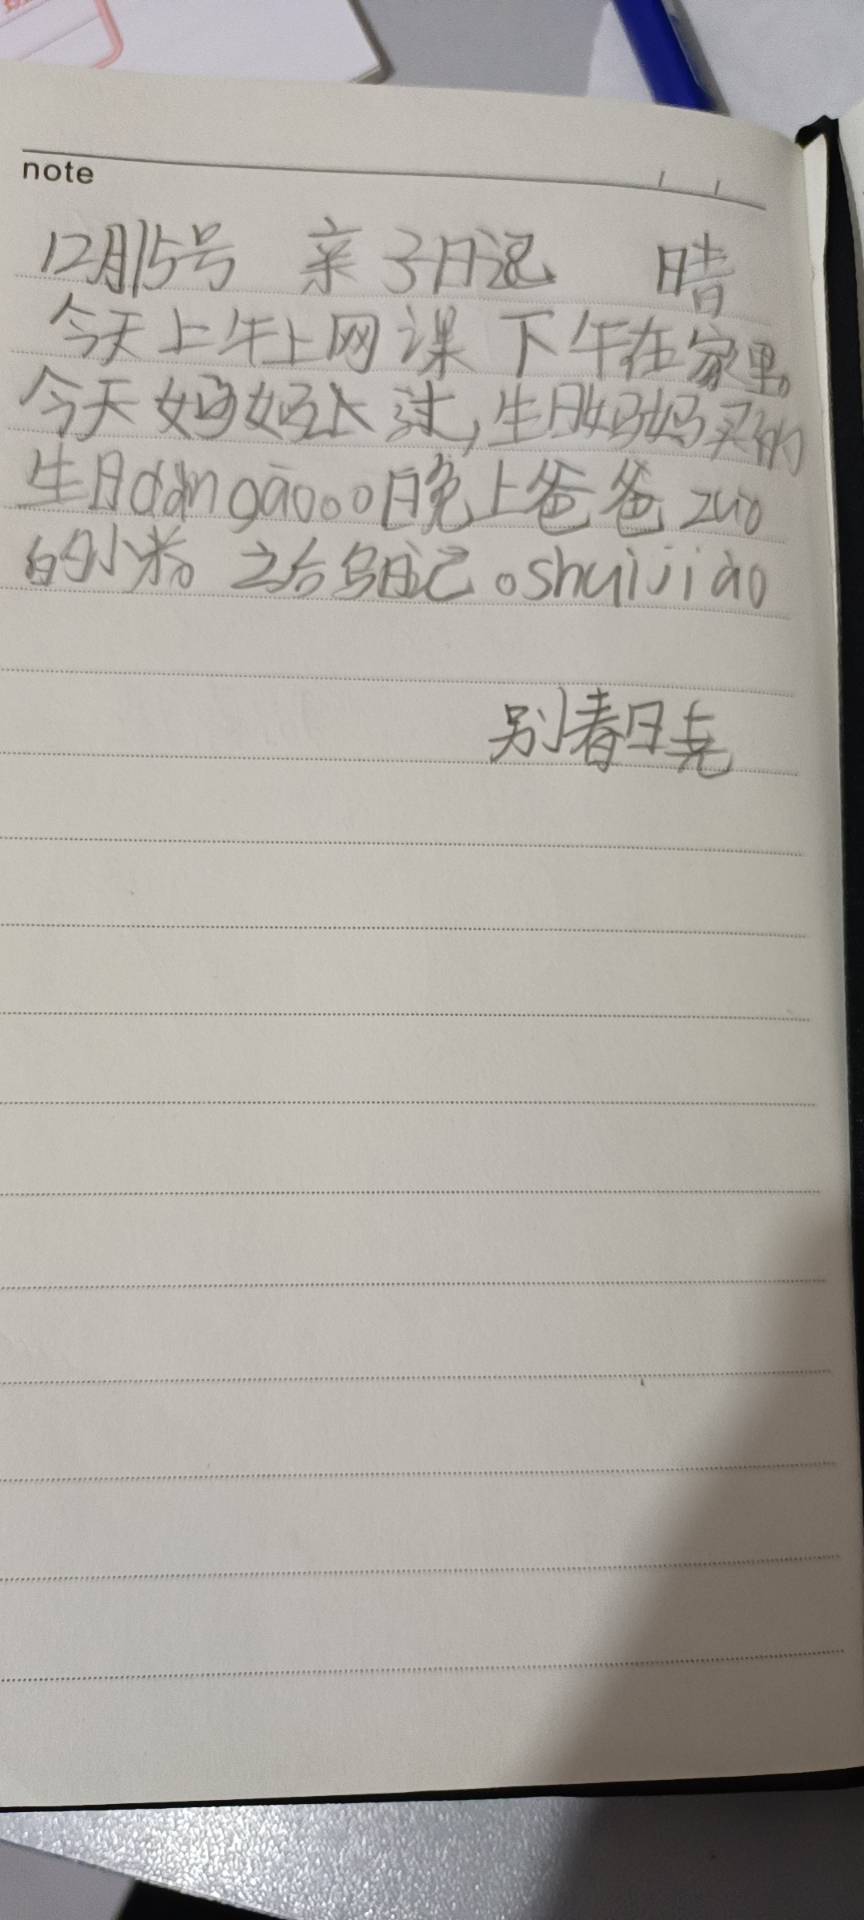 note
12月15号 亲子日记 晴
今天上午上网课 下午在家里。
今天妈妈 过,生日妈妈买的
生日dàngāo。。。晚上爸爸zuò
的小米。之后写日记。shuìjiào
别春日尧